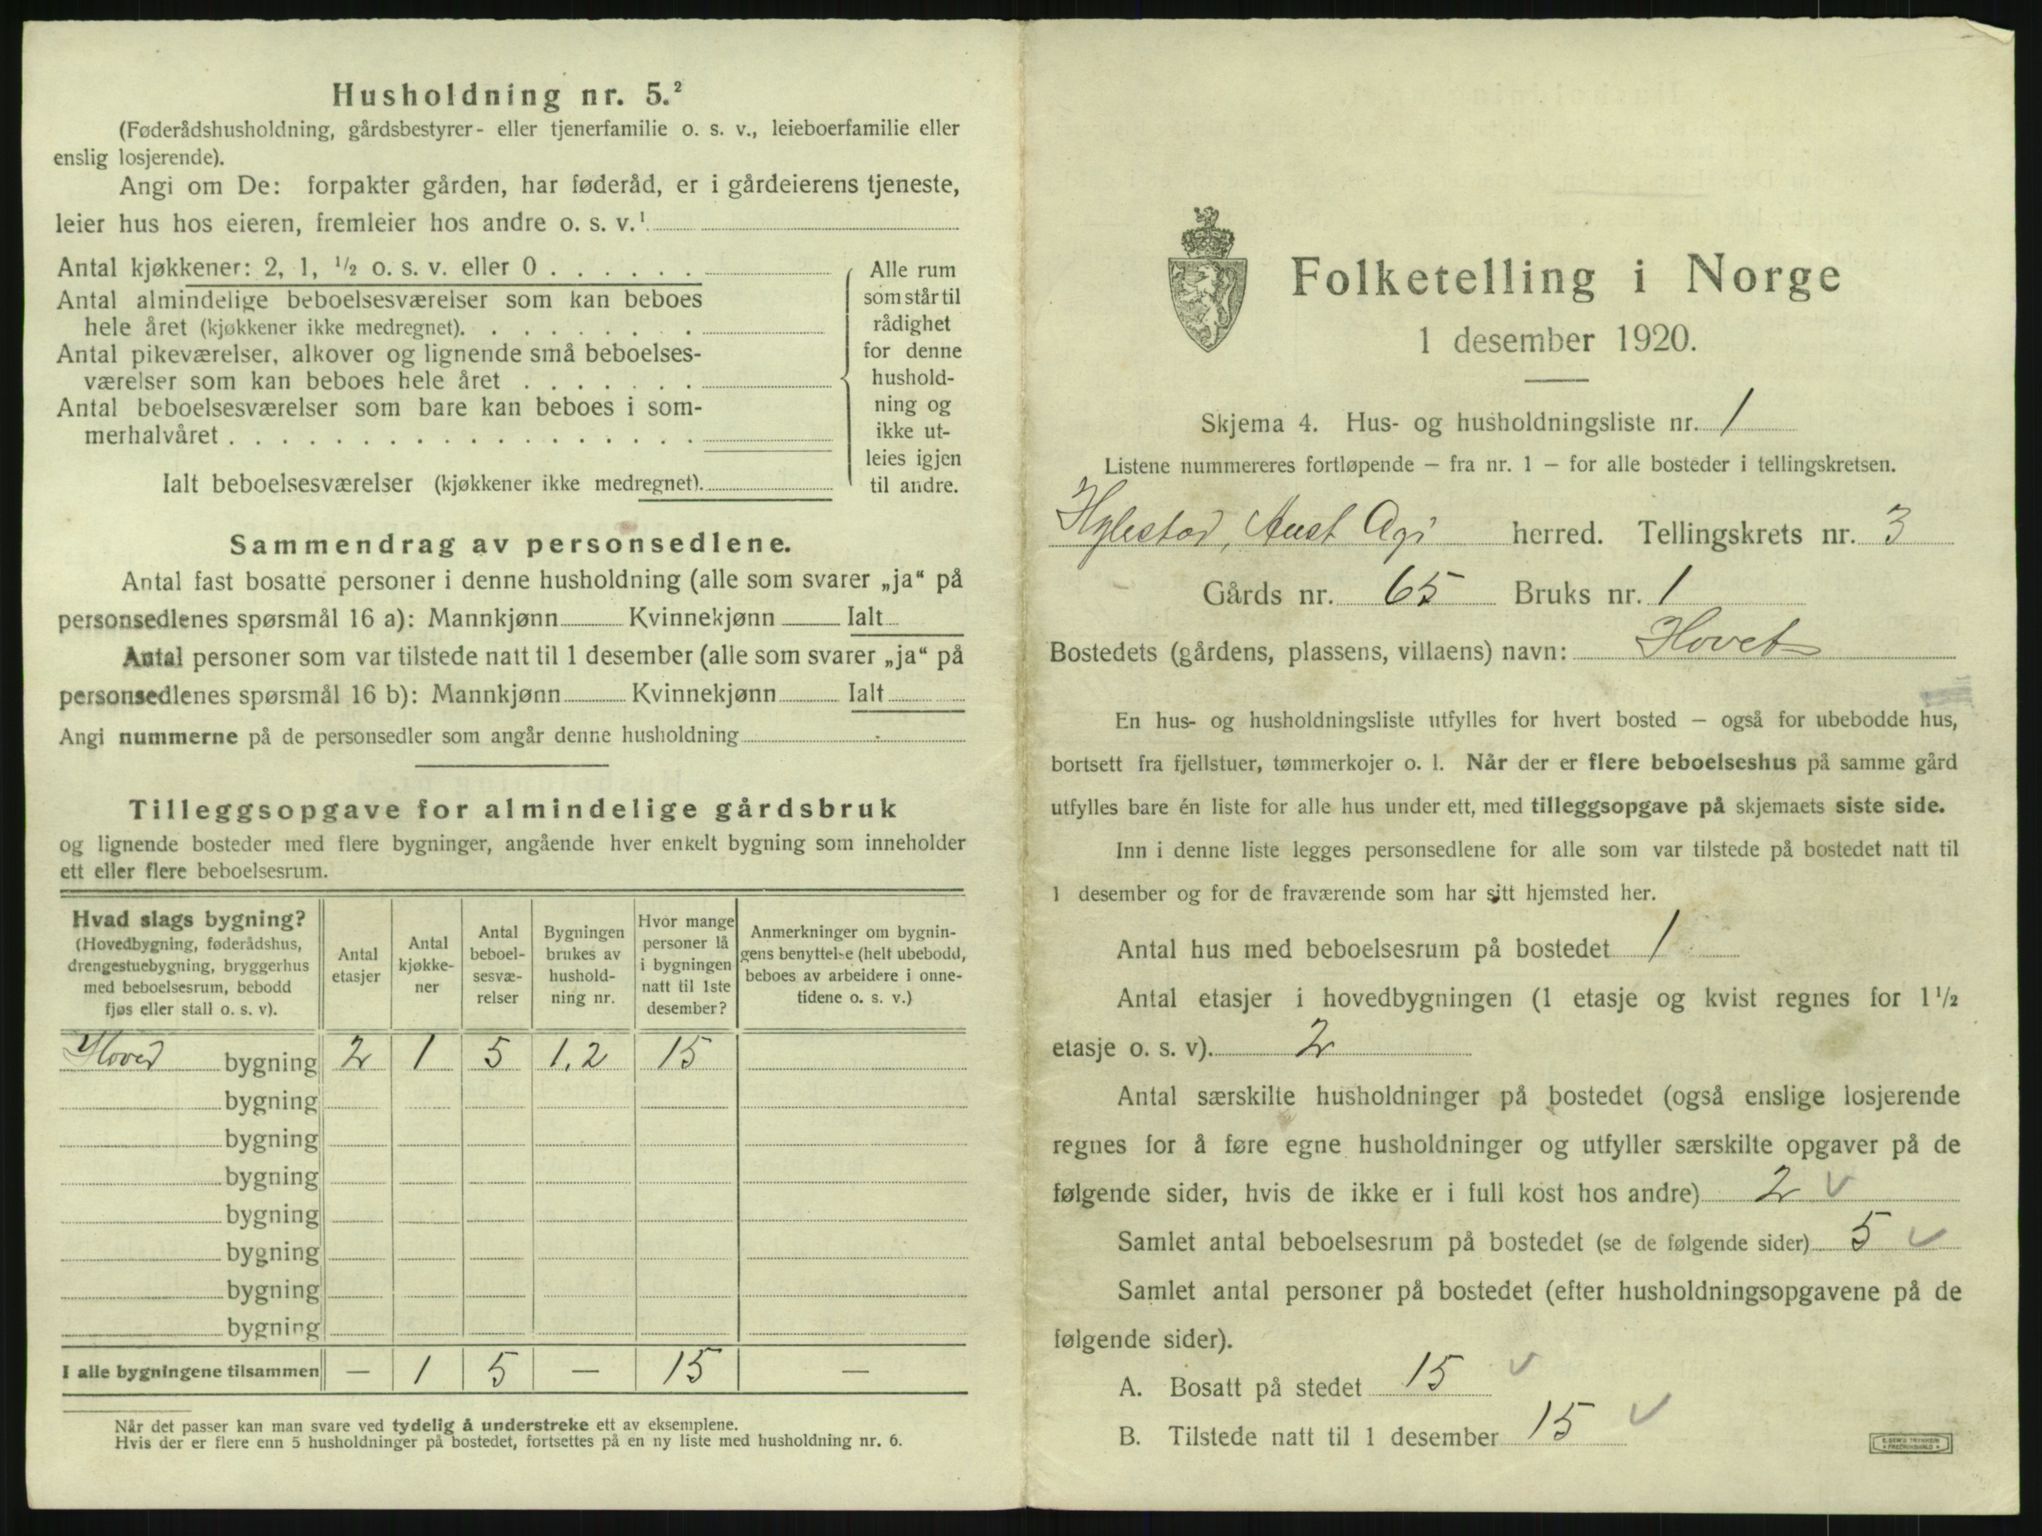 Husholdning nr. 5.²
(Føderådshusholdning, gårdsbestyrer- eller tjenerfamilie o. s. v., leieboerfamilie eller
enslig losjerende).
Angi om De: forpakter gården, har føderåd, er i gårdeierens tjeneste,
leier hus hos eieren, fremleier hos andre o. s. v.¹
Antal kjøkkener: 2, 1, ½ o. s. v. eller 0 . . . . . .
Antal almindelige beboelsesværelser som kan beboes
hele året (kjøkkener ikke medregnet). . . . . . . . .
Antal pikeværelser, alkover og lignende små beboelses-
værelser som kan beboes hele året . . . . . . .
Antal beboelsesværelser som bare kan beboes i som-
merhalvåret . . . . . . . . . . . . . . . . . .
Ialt beboelsesværelser (kjøkkener ikke medregnet).
Alle rum
som står til
rådighet
for denne
hushold-
ning og
ikke ut-
leies igjen
til andre.
Sammendrag av personsedlene.
Antal fast bosatte personer i denne husholdning (alle som svarer „ja“ på
personsedlenes spørsmål 16 a): Mannkjønn Kvinnekjønn Ialt
Antal personer som var tilstede natt til 1 desember (alle som svarer „ja“ på
personsedlenes spørsmål 16 b): Mannkjønn Kvinnekjønn Ialt
Angi nummerne på de personsedler som angår denne husholdning
Tilleggsopgave for almindelige gårdsbruk
og lignende bosteder med flere bygninger, angående hver enkelt bygning som inneholder
ett eller flere beboelsesrum.
Hvad slags bygning?
(Hovedbygning, føderådshus,
drengestuebygning, bryggerhus
med beboelsesrum, bebodd
fjøs eller stall o. s. v).
Antal
etasjer
Antal
kjøkke-
ner
Antal
beboel-
sesvæ-
relser
Bygningen
brukes av
hushold-
ning nr.
Hvor mange
personer lå
i bygningen
natt til 1ste
desember?
Anmerkninger om bygnin-
gens benyttelse (helt ubebodd,
beboes av arbeidere i onne-
tidene o. s. v.)
Hoved bygning 2 1 5 1,2 15
bygning
bygning
bygning
bygning
bygning
bygning
bygning
I alle bygningene tilsammen — 1 5 — 15 —
Når det passer kan man svare ved tydelig å understreke ett av eksemplene.
Hvis der er flere enn 5 husholdninger på bostedet, fortsettes på en ny liste med husholdning nr. 6.
Folketelling i Norge
1 desember 1920.
Skjema 4. Hus- og husholdningsliste nr. 1
Listene nummereres fortløpende — fra nr. 1 — for alle bosteder i tellingskretsen.
Hylestad, Aust Agi herred. Tellingskrets nr. 3
Gårds nr. 65 Bruks nr. 1
Bostedets (gårdens, plassens, villaens) navn: Hovet
En hus- og husholdningsliste utfylles for hvert bosted — også for ubebodde hus,
bortsett fra fjellstuer, tømmerkojer o. l. Når der er flere beboelseshus på samme gård
utfylles bare én liste for alle hus under ett, med tilleggsopgave på skjemaets siste side.
Inn i denne liste legges personsedlene for alle som var tilstede på bostedet natt til
1 desember og for de fraværende som har sitt hjemsted her.
Antal hus med beboelsesrum på bostedet 1
Antal etasjer i hovedbygningen (1 etasje og kvist regnes for 1½
etasje o. s. v). 2
Antal særskilte husholdninger på bostedet (også enslige losjerende
regnes for å føre egne husholdninger og utfyller særskilte opgaver på de
følgende sider, hvis de ikke er i full kost hos andre) 2 ✓
Samlet antal beboelsesrum på bostedet (se de følgende sider) 5 ✓
Samlet antal personer på bostedet (efter husholdningsopgavene på de
følgende sider).
A. Bosatt på stedet 15 ✓
B. Tilstede natt til 1 desember 15 ✓